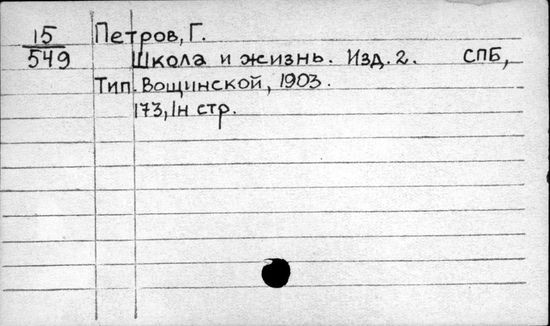 15 Петров, Г.
549 Школа и жизнь. Изд. 2. СПБ,
Тип. Вощинской, 1903.
173, 1н стр.